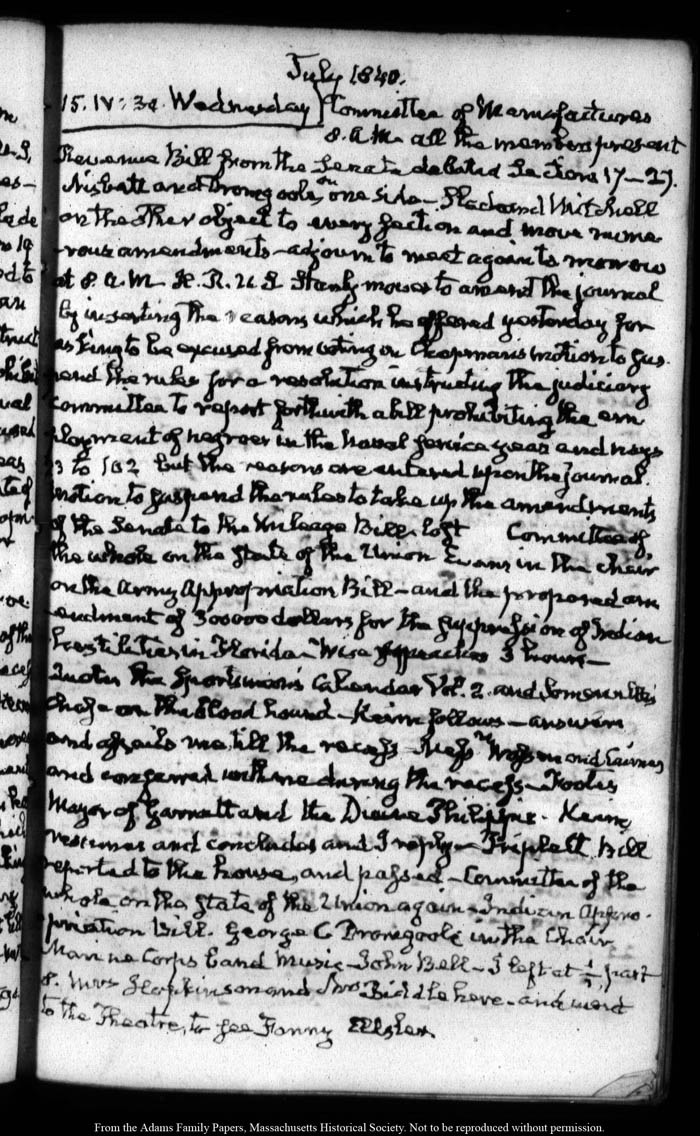 July 1840.
15. IV: 30. Wednesday } Committee of Manufactures
8. A.M. all the members present
Revenue Bill from the Senate debated Sections 17–27.
Nisbett and Dromgoole on one side – Slade and Mitchell
on the other object to every section and move nume
rous amendments – adjourn to meet again to morrow
at 8. A.M. H.R.U.S. Stanly moves to amend the journal
by inserting the reasons which he offered yesterday for
asking to be excused from voting on Chapman's motion to sus-
pend the rules for a resolution instructing the judiciary
committee to report forthwith a bill prohibiting the em
ployment of negroes in the Naval service yeas and nays
to 102 but the reasons are entered upon the Journal.
motion to suspend the rules to take up the amendments
of the Senate to the Mileage Bill. lost Committee of
the whole on the state of the Union Evans in the chair
on the Army Appropriation Bill – and the proposed am
endment of 300000 dollars for the suppression of Indian
hostilities in Florida – Wise speaches 3 hours –
Quotes the Sportsman's Calendar Vol. 2. and Somerville's
Chase on the blood hound – Keim follows – answers
and assails me till the recess – Messrs and
and conferred with me during the recess –
Mayor of and the Philippic. Keim
resumes and concludes and I reply – Triplett. Bill
reported to the house, and passed – Committee of the
whole on the state of the Union again – Indian Appro-
priation Bill. George C Dromgoole in the Chair
Marine Corps band Music – John Bell – I left at ½ past
8. Mrs Hopkinson and Biddle here – and went
to the Theatre, to see Fanny Elssler.
From the Adams Family Papers, Massachusetts Historical Society. Not to be reproduced without permission.